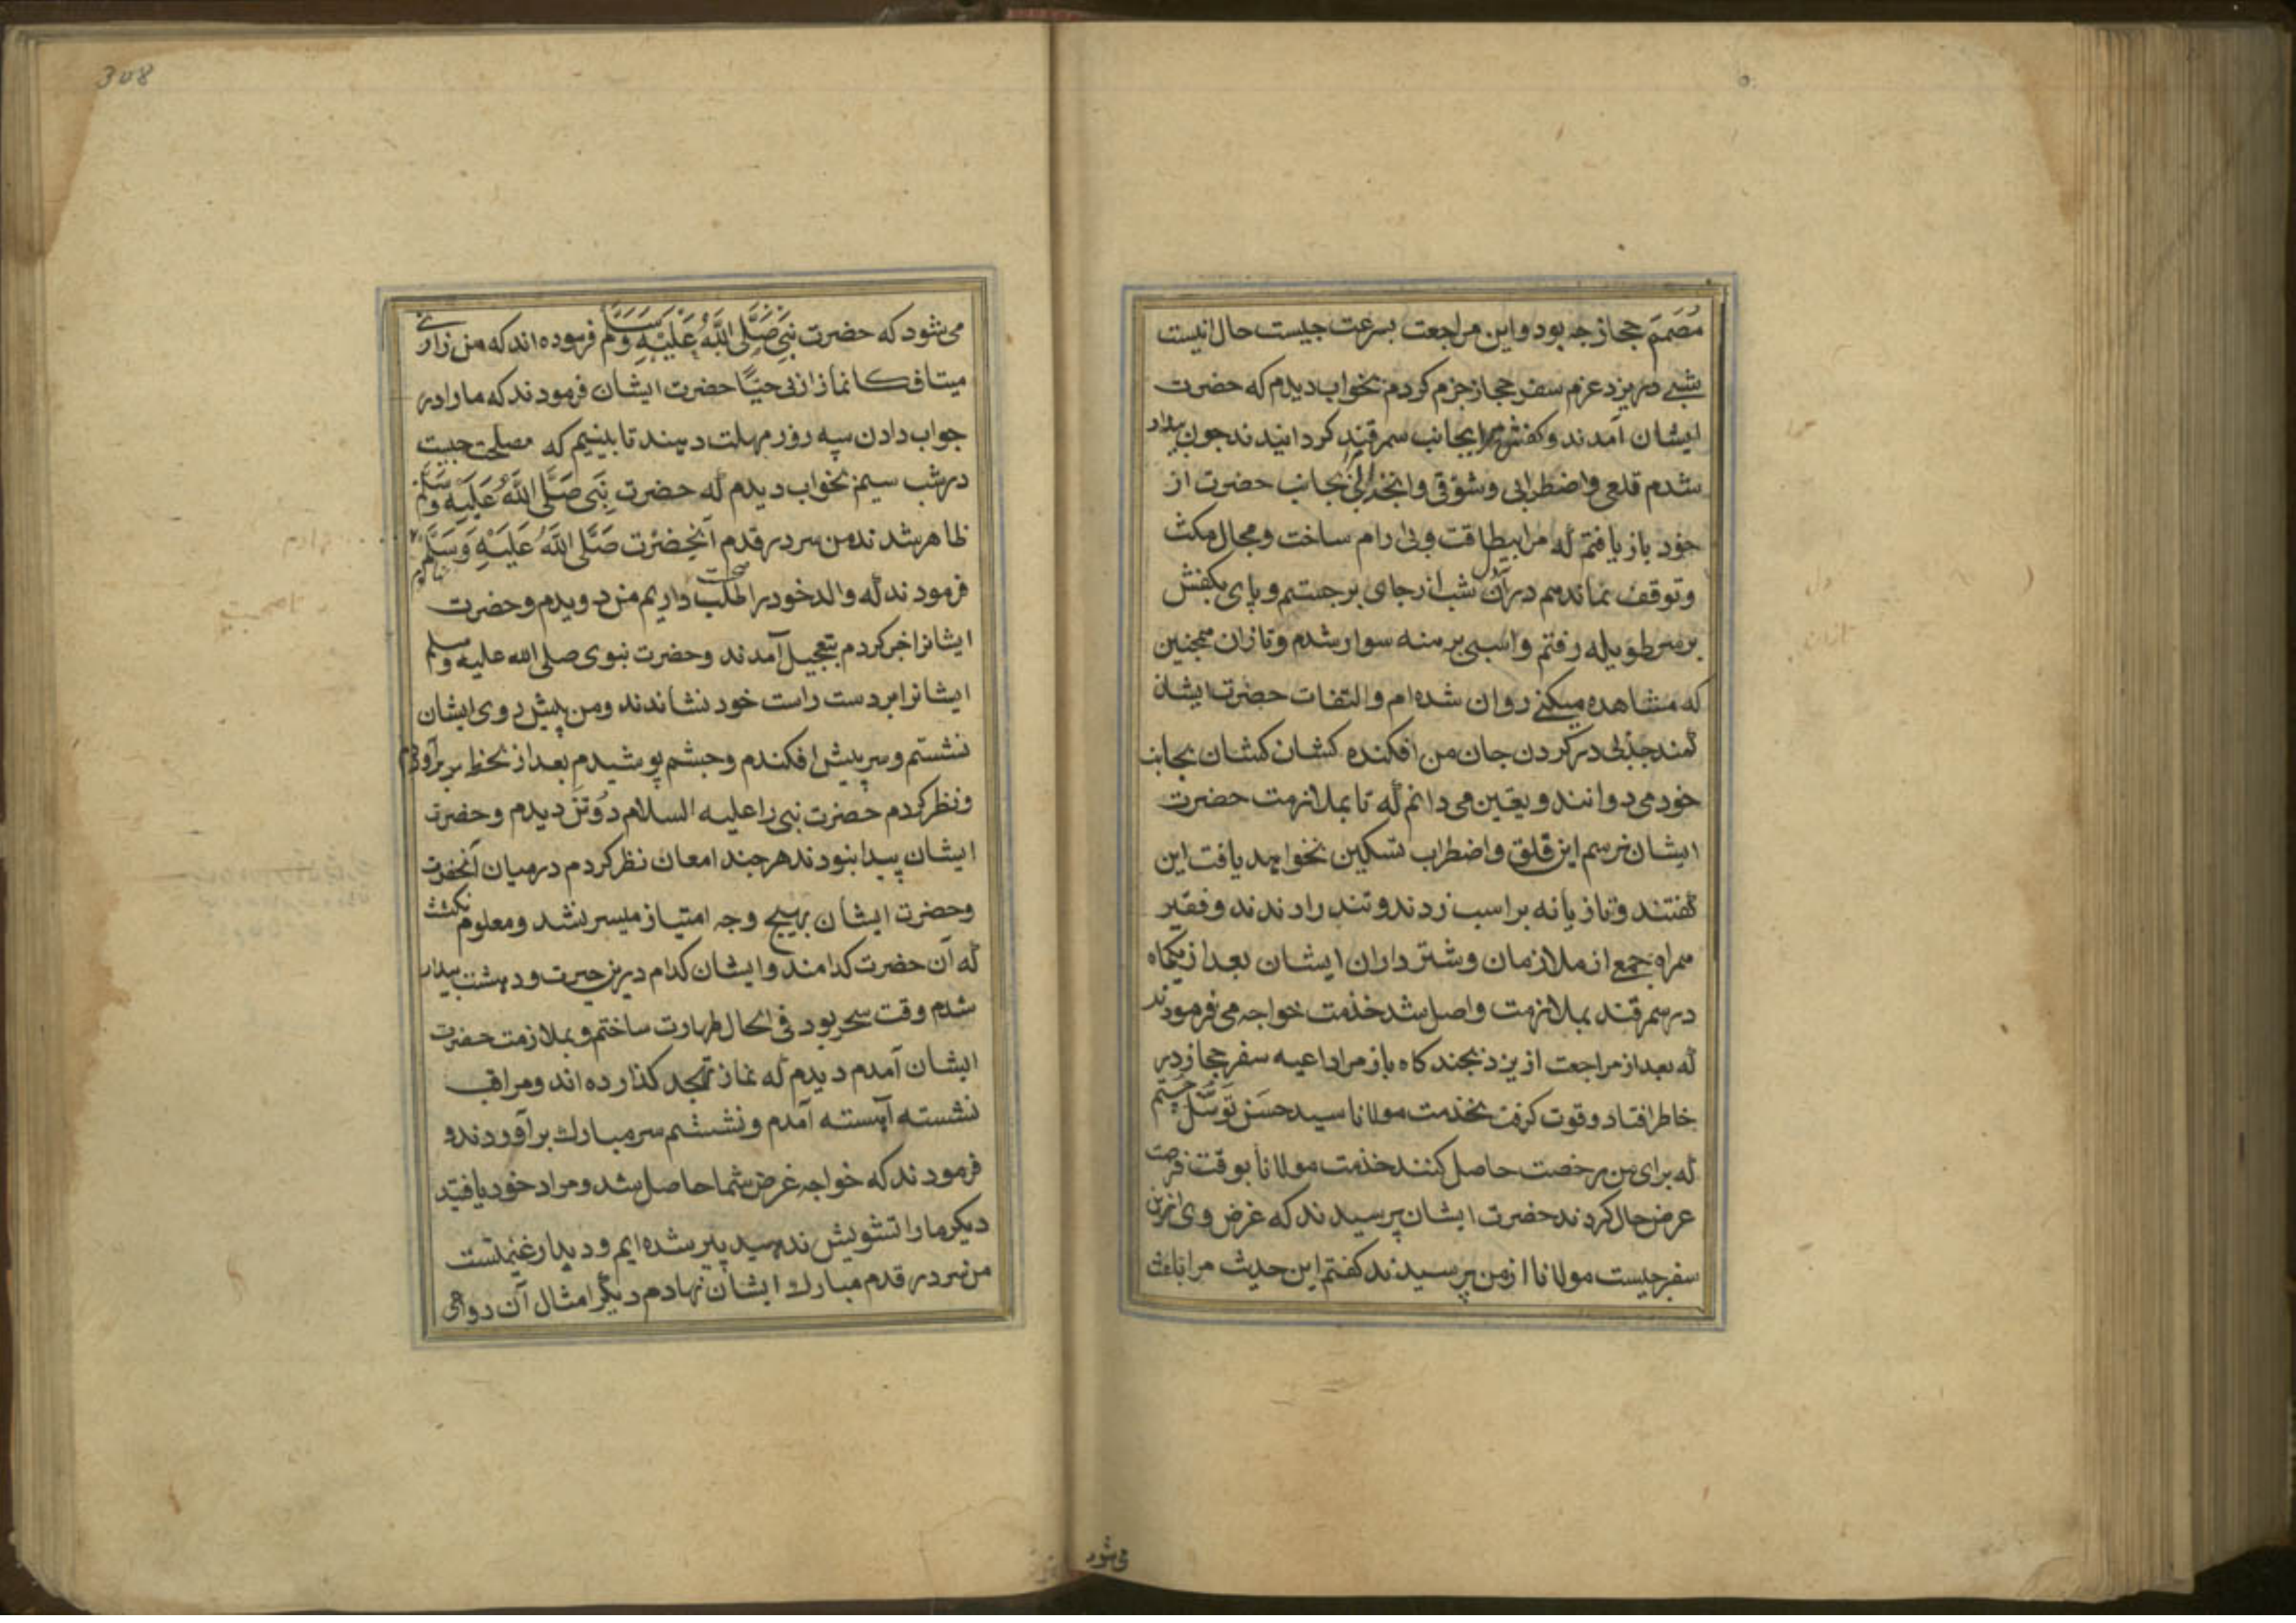 مُصَمَم حجاز جه بود و این مراجعت بسرعت جیست حال انیست
شبی در یزد عزم سفر حجاز جزم کردم بخواب دیدم که حضرت
ایشان آمدند و کفش مرا بجانب سمرقند کردانیدند جون بیدار
شدم قلعی و اضطرابی و شوقی و انجذابی بجانب حضرت از
خود باز یافتم که مرا بیطاقت و بی ارام ساخت و مجال مکث
و توقف نماند هم در آن شب از جای برجستم و پای بکفش
بر سر طویله رفتم و اسبی برهنه سوار شدم و تازان همجنین
که مشاهده میکنی روان شده ام و التفات حضرت ایشان
کمند جذبی در کردن جان من افکنده کشان کشان بجانب
خود می دوانند و یقین می دانم که تا بملازمت حضرت
ایشان نرسم این قلق و اضطراب تسکین نخواهد یافت این
کفتند و تازیانه بر اسب زدند و تند راندند و فقیر
همراه جمعی از ملازمان و شترداران ایشان بعد از یکماه
در سمرقند بملازمت واصل شد خذمت خواجه می فرمودند
که بعد از مراجعت از یزد بجند کاه باز مرا داعیه سفر حجاز در
خاطر افتاد و قوت کرفت بخذمت مولانا سید حسَن تَوسّل جستم
که برای من رخصت حاصل کنند خذمت مولانا بوقت فرصت
عرض حال کردند حضرت ایشان پرسیدند که غرض وی ازین
سفر جیست مولانا از من پرسیدند کفتم این حدیث مرا باعث
می شود
308
می شود که حضرت نبی صَلَّی اللَّهُ عَلَیْهِ وَسَلَّم فرموده اند که من زارنی
میتا فکانما زارنی حیًا حضرت ایشان فرمودند که ما را در
جواب دادن سه روز مهلت دهند تا بینیم که مصلحت جیست
در شب سیم بخواب دیدم که حضرت نبی صَلَّی اللَّهُ عَلَیْهِ وَسَلَّم
ظاهر شدند من سر در قدم آنحضرت صَلَّی اللَّهُ عَلَیْهِ وَسَلَّم نهادم
فرمودند که والد خود را طلب صحبت داریم من دویدم و حضرت
ایشانرا خبر کردم بتعجیل آمدند و حضرت نبوی صلی الله علیه وسلم
ایشانرا بر دست راست خود نشاندند و من پیش روی ایشان
نشستم و سر پیش افکندم و جشم پوشیدم بعد از لحظه سر برآوردم
و نظر کردم حضرت نبی را علیه السلام دو تن دیدم و حضرت
ایشان پیدا نبودند هر جند امعان نظر کردم در میان آنحضرت
و حضرت ایشان بهیج وجه امتیاز میسر نشد و معلوم نکشت
که آن حضرت کدامند و ایشان کدام درین حیرت و دهشت بیدار
شدم وقت سحر بود فی الحال طهارت ساختم و بملازمت حضرت
ایشان آمدم دیدم که نماز تهجد کذارده اند و مراقب
نشسته آهسته آمدم و نشستم سر مبارک برآوردند و
فرمودند که خواجه غرض شما حاصل شد و مراد خود یافتید
دیکر ما را تشویش ندهید پیر شده ایم و دیدار غنیمتست
من سر در قدم مبارک ایشان نهادم دیگر امثال آن دواعی